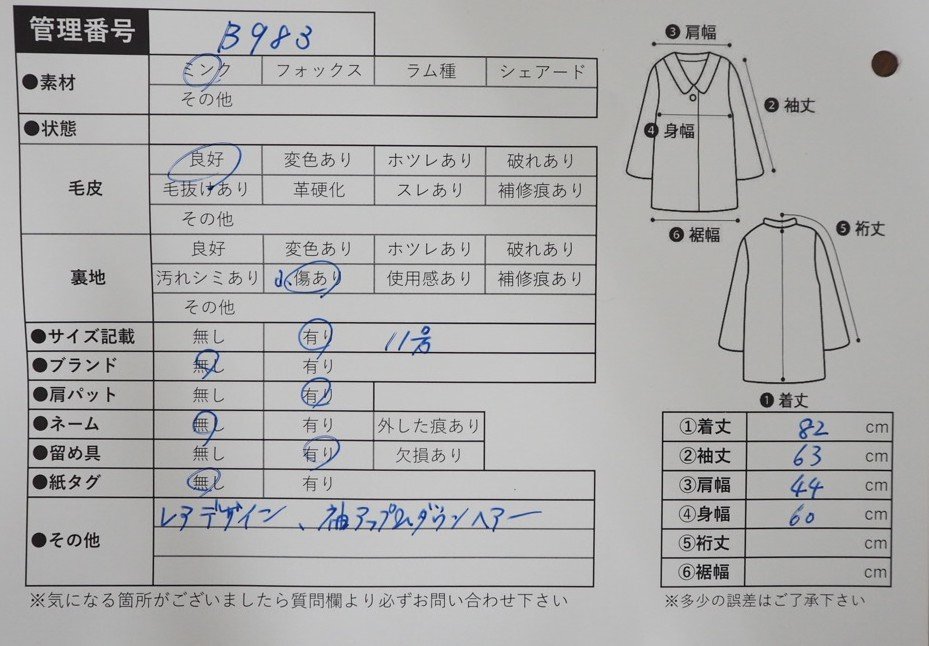 管理番号 B983
●素材 ミンク フォックス ラム種 シェアード
その他
●状態
毛皮 良好 変色あり ホツレあり 破れあり
毛抜けあり 革硬化 スレあり 補修痕あり
その他
裏地 良好 変色あり ホツレあり 破れあり
汚れシミあり 小 傷あり 使用感あり 補修痕あり
その他
●サイズ記載 無し 有り 11号
●ブランド 無し 有り
●肩パット 無し 有り
●ネーム 無し 有り 外した痕あり
●留め具 無し 有り 欠損あり
●紙タグ 無し 有り
●その他 レアデザイン、袖アップ&ダウンヘアー
※気になる箇所がございましたら質問欄より必ずお問い合わせ下さい
❸肩幅
❷袖丈
❹身幅
❻裾幅
❺裄丈
❶着丈
①着丈 82 cm
②袖丈 63 cm
③肩幅 44 cm
④身幅 60 cm
⑤裄丈 cm
⑥裾幅 cm
※多少の誤差はご了承下さい